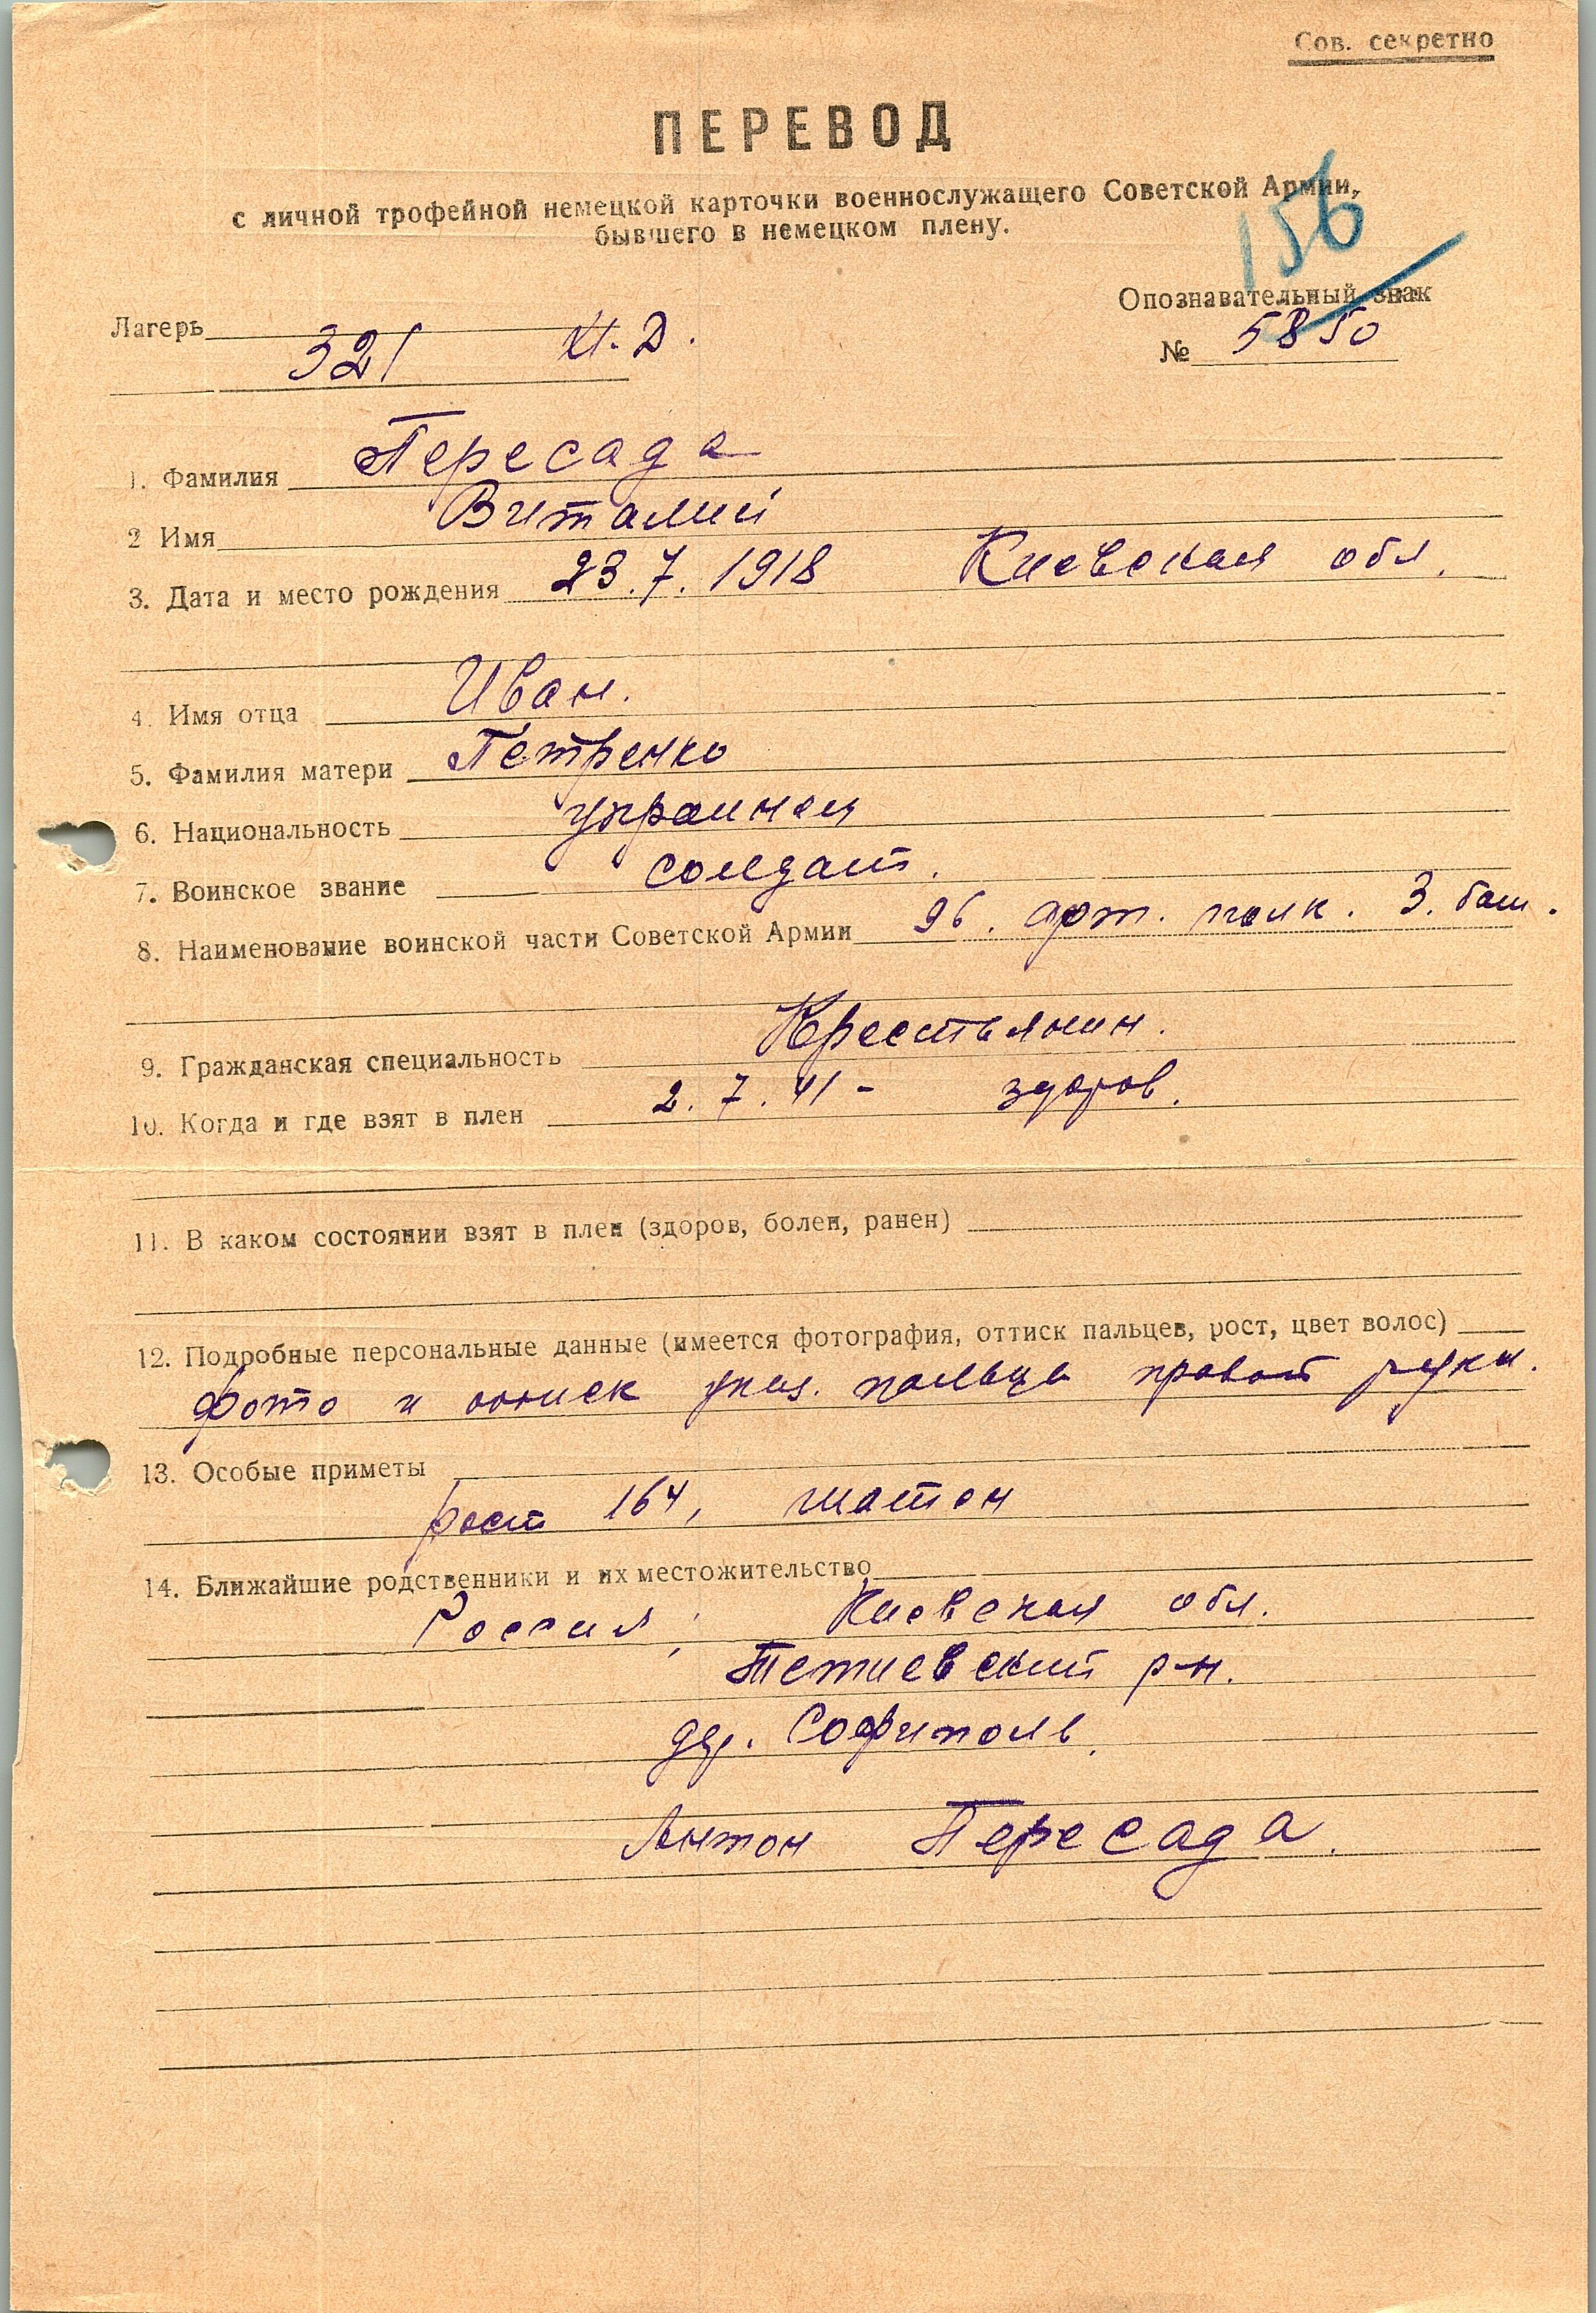 Сов. секретно
ПЕРЕВОД
с личной трофейной немецкой карточки военнослужащего Советской Армии,
бывшего в немецком плену.
156
Опознавательный знак
Лагерь 321 XI. Д.
№ 5850
1. Фамилия Пересада
2 Имя Виталий
3. Дата и место рождения 23.7.1918 Киевская обл.
4. Имя отца Иван.
5. Фамилия матери Петренко
6. Национальность украинец
7. Воинское звание солдат.
8. Наименование воинской части Советской Армии 96. арт. полк. 3. бат.
9. Гражданская специальность Крестьянин.
10. Когда и где взят в плен 2.7.41 - здоров.
11. В каком состоянии взят в плен (здоров, болен, ранен)
12. Подробные персональные данные (имеется фотография, оттиск пальцев, рост, цвет волос)
фото и оттиск указ. пальца правой руки.
13. Особые приметы
рост 164, шатен
14. Ближайшие родственники и их местожительство
Россия, Киевская обл.
Тетиевский р-н.
дер. Софиполь.
Антон Пересада.